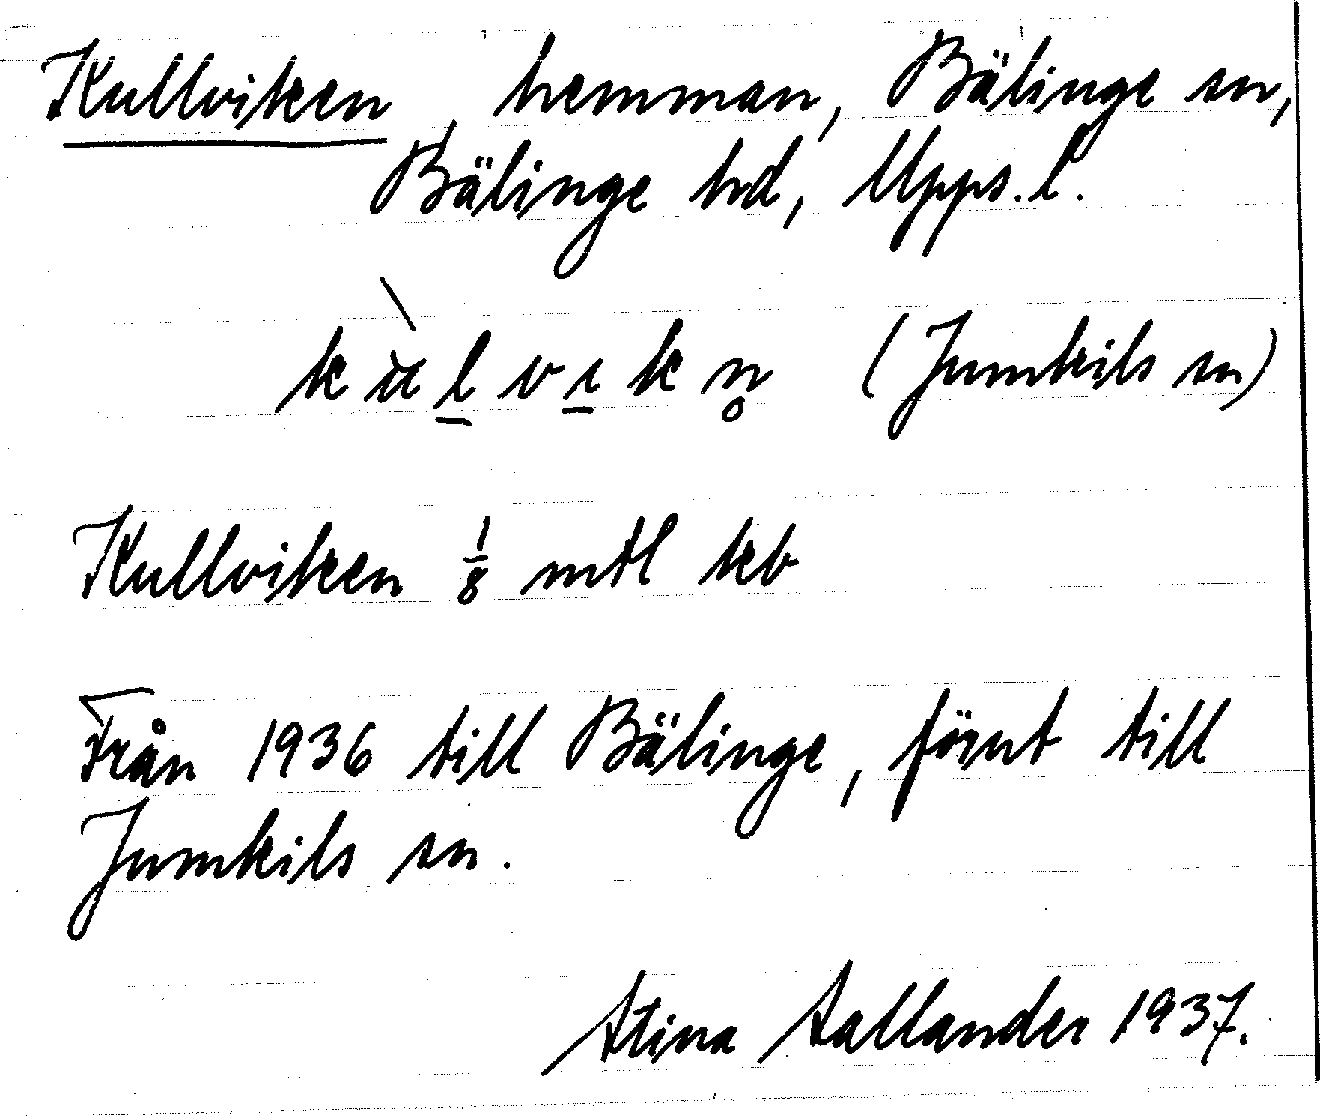 Kullviken, hemman, Bälinge sn,
Bälinge hd, Upps. l.
(Jumkils sn)
Kullviken 1/8 mtl kb
Från 1936 till Bälinge, förut till
Jumkils sn.
Stina Sallander 1937.